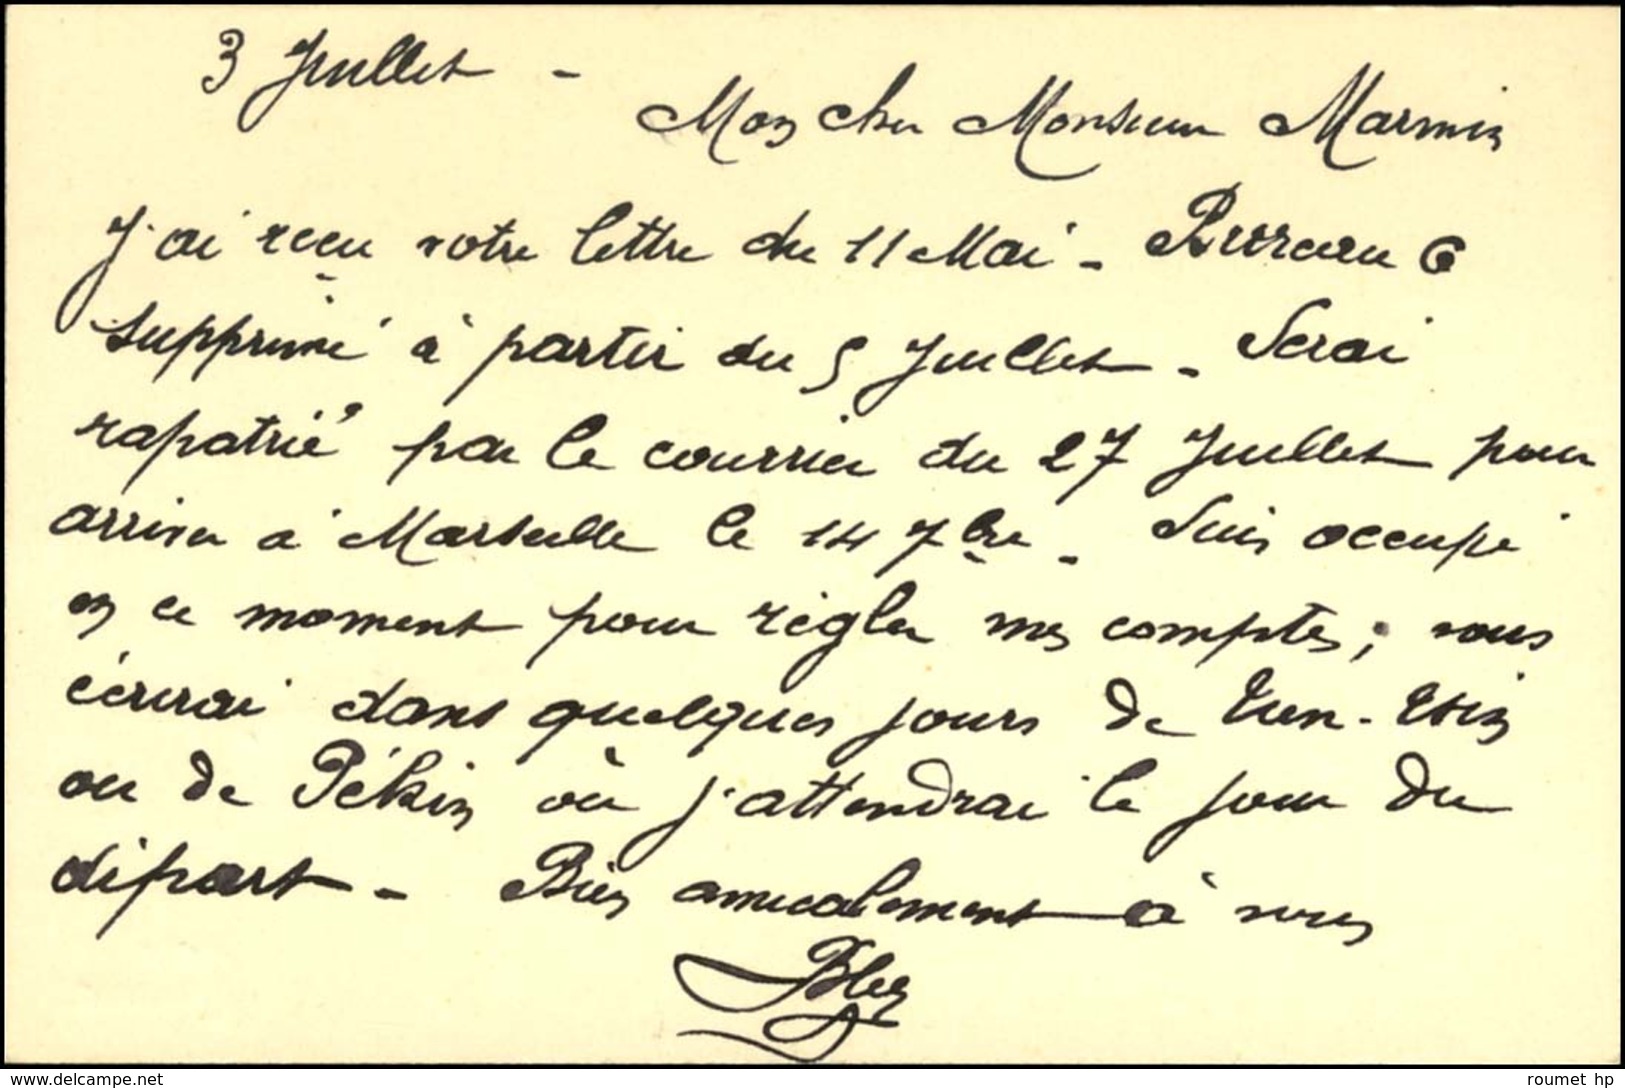 3 Juillet -
Mon cher Monsieur Marmin
J'ai reçu votre lettre du 11 Mai - Bureau 6
supprimé à partir du 5 Juillet - Serai
rapatrié par le courrier du 27 Juillet pour
arriver à Marseille le 14 7bre - Suis occupé
en ce moment pour règler mes comptes; vous
écrirai dans quelques jours de Tien-Tsin
ou de Pékin où j'attendrai le jour du
départ - Bien amicalement à vous
delcampe.net
roumet hp